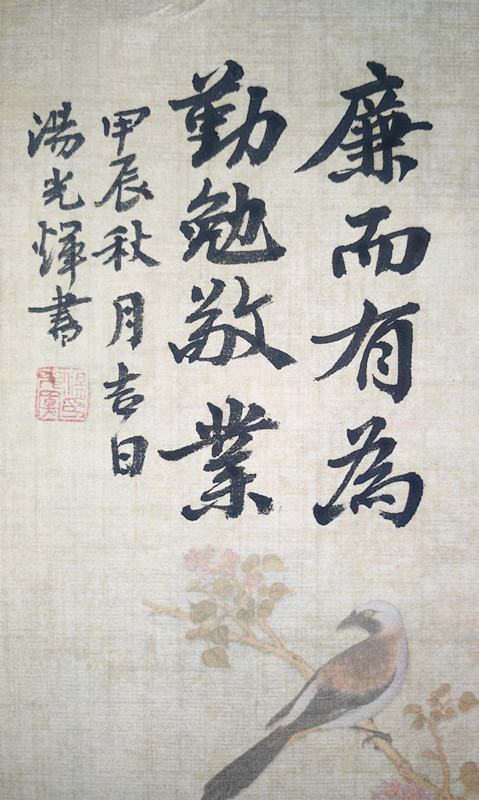 廉而有為
勤勉敬業
甲辰秋月吉日
湯光輝書